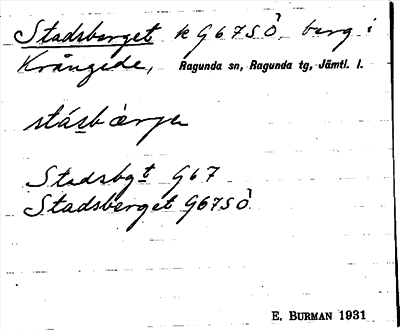 Stadsberget k G67SÖ berg i
Krångede, Ragunda sn, Ragunda tg, Jämtl. l.
stásbærje
Stadsbgt G67
Stadsberget G67SÖ
E. BURMAN 1931